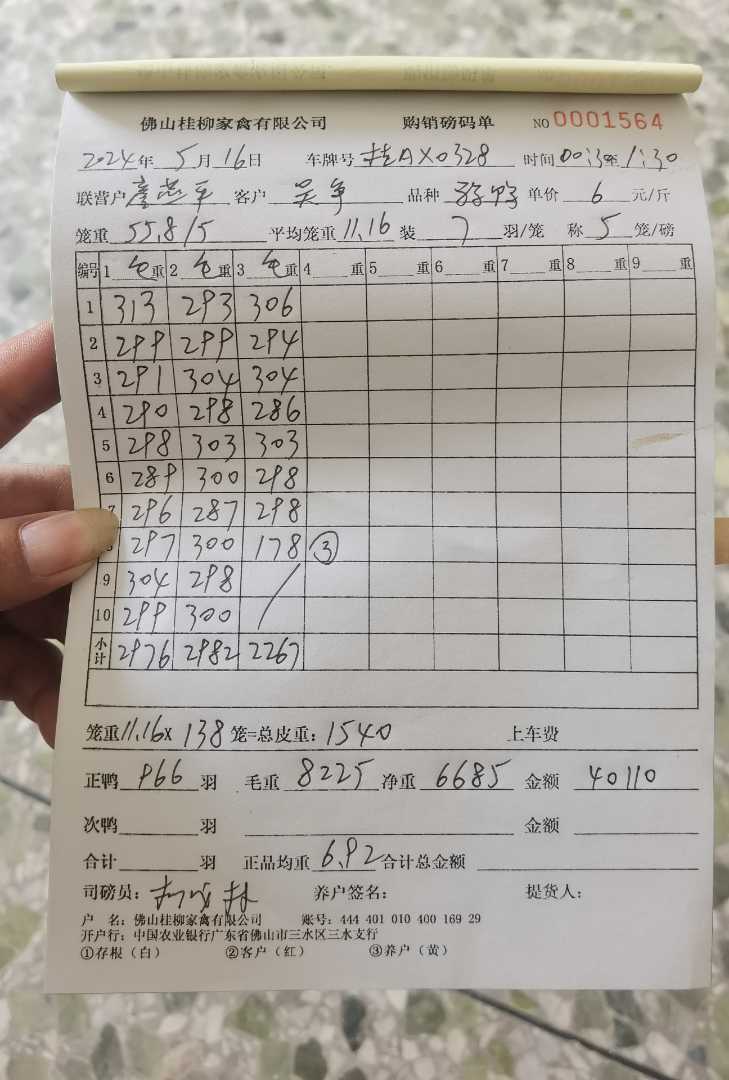 佛山桂柳家禽有限公司 购销磅码单 NO 0001564
2024年 5月16日 车牌号 桂AX0328 时间 00:30至1:30
联营户 燕平 客户 吴 品种 单价 6 元/斤
笼重 55.8/5 平均笼重 11.16 装 7 羽/笼 称 5 笼/磅
编号 1 毛重 2 毛重 3 毛重 4 重 5 重 6 重 7 重 8 重 9 重
1 313 293 306
2 299 299 294
3 291 304 304
4 290 298 286
5 298 303 303
6 289 300 298
7 296 287 298
8 297 300 178 ③
9 304 298 /
10 299 300
小计 2976 2982 2267
笼重11.16X 138 笼=总皮重: 1540 上车费
正鸭 966 羽 毛重 8225 净重 6685 金额 40110
次鸭 羽 金额
合计 羽 正品均重 6.92 合计总金额
司磅员: 林 养户签名: 提货人:
户 名: 佛山桂柳家禽有限公司 账号: 444 401 010 400 169 29
开户行: 中国农业银行广东省佛山市三水区三水支行
①存根（白） ②客户（红） ③养户（黄）